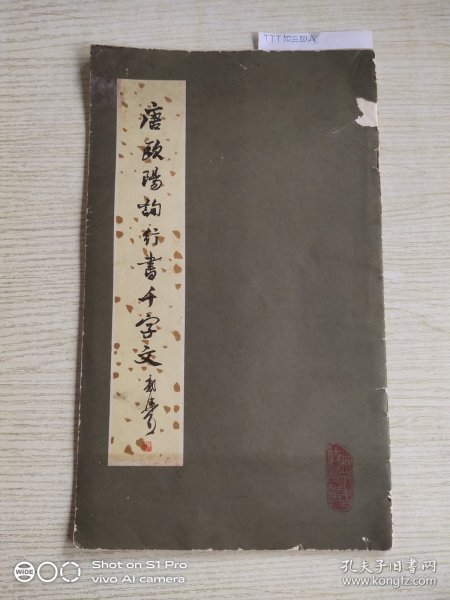 唐欧陽詢行書千字文
WIDE
Shot on S1 Pro
vivo AI camera
孔夫子旧书网
www.kongfz.com